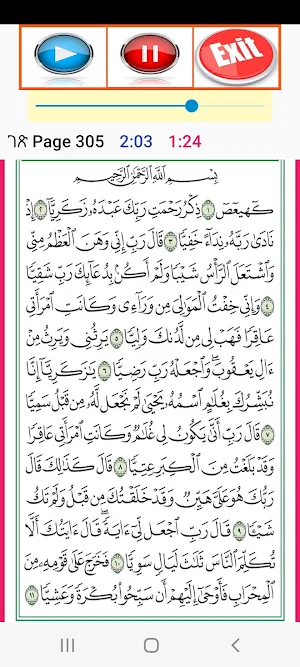 Exit
ገጽ Page 305 2:03 1:24
بِسْمِ ٱللَّهِ ٱلرَّحْمَٰنِ ٱلرَّحِيمِ
كٓهيعٓصٓ ١ ذِكْرُ رَحْمَتِ رَبِّكَ عَبْدَهُۥ زَكَرِيَّآ ٢ إِذْ
نَادَىٰ رَبَّهُۥ نِدَآءً خَفِيًّا ٣ قَالَ رَبِّ إِنِّى وَهَنَ ٱلْعَظْمُ مِنِّى
وَٱشْتَعَلَ ٱلرَّأْسُ شَيْبًا وَلَمْ أَكُنۢ بِدُعَآئِكَ رَبِّ شَقِيًّا
٤ وَإِنِّى خِفْتُ ٱلْمَوَٰلِىَ مِن وَرَآءِى وَكَانَتِ ٱمْرَأَتِى
عَاقِرًا فَهَبْ لِى مِن لَّدُنكَ وَلِيًّا ٥ يَرِثُنِى وَيَرِثُ مِنْ
ءَالِ يَعْقُوبَ ۖ وَٱجْعَلْهُ رَبِّ رَضِيًّا ٦ يَٰزَكَرِيَّآ إِنَّا
نُبَشِّرُكَ بِغُلَٰمٍ ٱسْمُهُۥ يَحْيَىٰ لَمْ نَجْعَل لَّهُۥ مِن قَبْلُ سَمِيًّا
٧ قَالَ رَبِّ أَنَّىٰ يَكُونُ لِى غُلَٰمٌ وَكَانَتِ ٱمْرَأَتِى عَاقِرًا
وَقَدْ بَلَغْتُ مِنَ ٱلْكِبَرِ عِتِيًّا ٨ قَالَ كَذَٰلِكَ قَالَ
رَبُّكَ هُوَ عَلَىَّ هَيِّنٌ وَقَدْ خَلَقْتُكَ مِن قَبْلُ وَلَمْ تَكُ
شَيْـًٔا ٩ قَالَ رَبِّ ٱجْعَل لِّىٓ ءَايَةً ۚ قَالَ ءَايَتُكَ أَلَّا
تُكَلِّمَ ٱلنَّاسَ ثَلَٰثَ لَيَالٍ سَوِيًّا ١٠ فَخَرَجَ عَلَىٰ قَوْمِهِۦ مِنَ
ٱلْمِحْرَابِ فَأَوْحَىٰٓ إِلَيْهِمْ أَن سَبِّحُوا۟ بُكْرَةً وَعَشِيًّا ١١